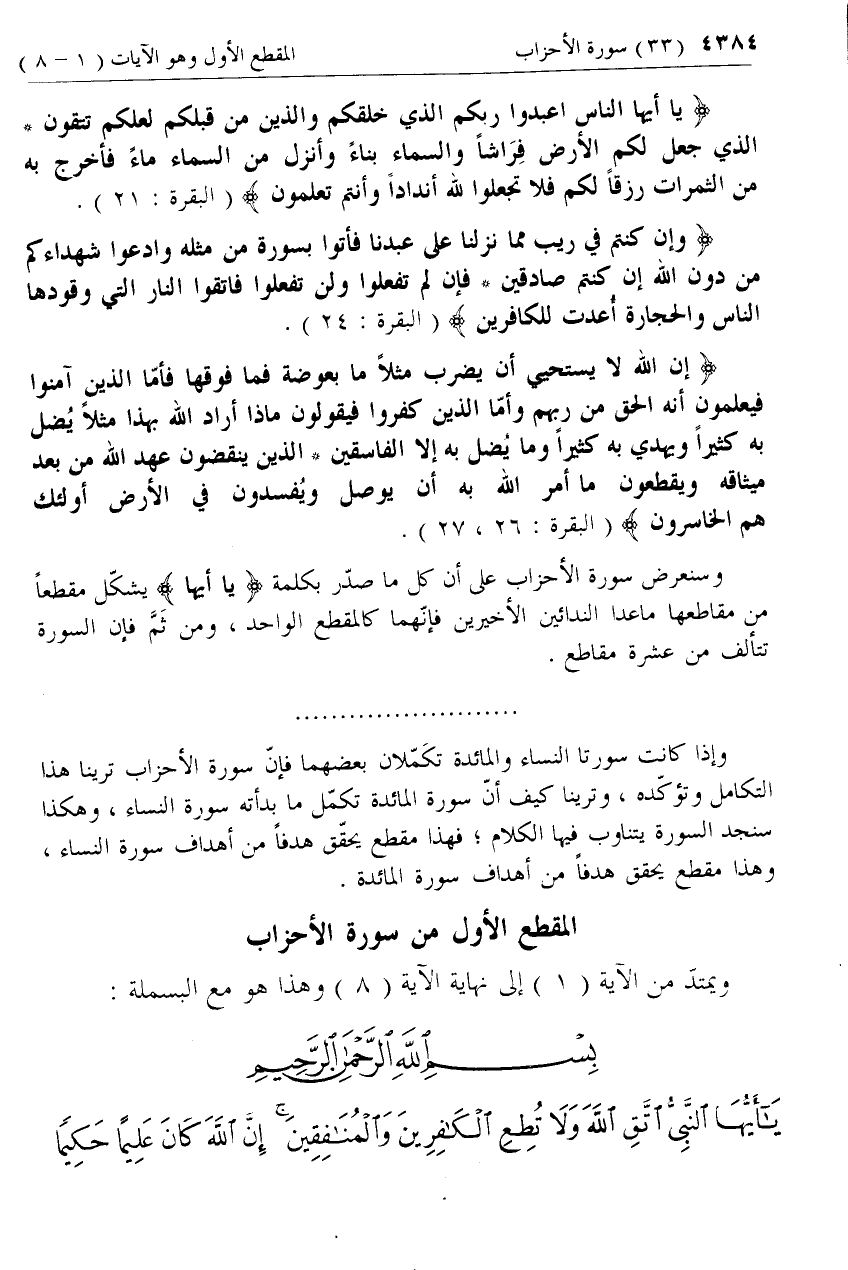 ٤٣٨٤ (٣٣) سورة الأحزاب المقطع الأول وهو الآيات ( ١ - ٨ )
﴿ يا أيها الناس اعبدوا ربكم الذي خلقكم والذين من قبلكم لعلكم تتقون *
الذي جعل لكم الأرض فِرَاشاً والسماء بناءً وأنزل من السماء ماءً فأخرج به
من الثمرات رزقاً لكم فلا تجعلوا لله أنداداً وأنتم تعلمون ﴾ ( البقرة : ٢١ ) .
﴿ وإن كنتم في ريب مما نزلنا على عبدنا فأتوا بسورة من مثله وادعوا شهداءكم
من دون الله إن كنتم صادقين * فإن لم تفعلوا ولن تفعلوا فاتقوا النار التي وقودها
الناس والحجارة أُعدت للكافرين ﴾ ( البقرة : ٢٤ ) .
﴿ إن الله لا يستحيي أن يضرب مثلاً ما بعوضة فما فوقها فأمّا الذين آمنوا
فيعلمون أنه الحق من ربهم وأمّا الذين كفروا فيقولون ماذا أراد الله بهذا مثلاً يُضل
به كثيراً ويهدي به كثيراً وما يُضل به إلا الفاسقين * الذين ينقضون عهد الله من بعد
ميثاقه ويقطعون ما أمر الله به أن يوصل ويُفسدون في الأرض أولئك
هم الخاسرون ﴾ ( البقرة : ٢٦ ، ٢٧ ) .
وسنعرض سورة الأحزاب على أن كل ما صدّر بكلمة ﴿ يا أيها ﴾ يشكّل مقطعاً
من مقاطعها ماعدا الندائين الأخيرين فإنّهما كالمقطع الواحد ، ومن ثَمَّ فإن السورة
تتألف من عشرة مقاطع .
.........................
وإذا كانت سورتا النساء والمائدة تكَمّلان بعضهما فإنّ سورة الأحزاب ترينا هذا
التكامل وتؤكّده ، وترينا كيف أنّ سورة المائدة تكمّل ما بدأته سورة النساء ، وهكذا
سنجد السورة يتناوب فيها الكلام ؛ فهذا مقطع يحقّق هدفاً من أهداف سورة النساء ،
وهذا مقطع يحقق هدفاً من أهداف سورة المائدة .
المقطع الأول من سورة الأحزاب
ويمتدّ من الآية ( ١ ) إلى نهاية الآية ( ٨ ) وهذا هو مع البسملة :
بِسْمِ ٱللَّهِ ٱلرَّحْمَٰنِ ٱلرَّحِيمِ
يَـٰٓأَيُّهَا ٱلنَّبِىُّ ٱتَّقِ ٱللَّهَ وَلَا تُطِعِ ٱلْكَـٰفِرِينَ وَٱلْمُنَـٰفِقِينَ ۚ إِنَّ ٱللَّهَ كَانَ عَلِيمًا حَكِيمًا